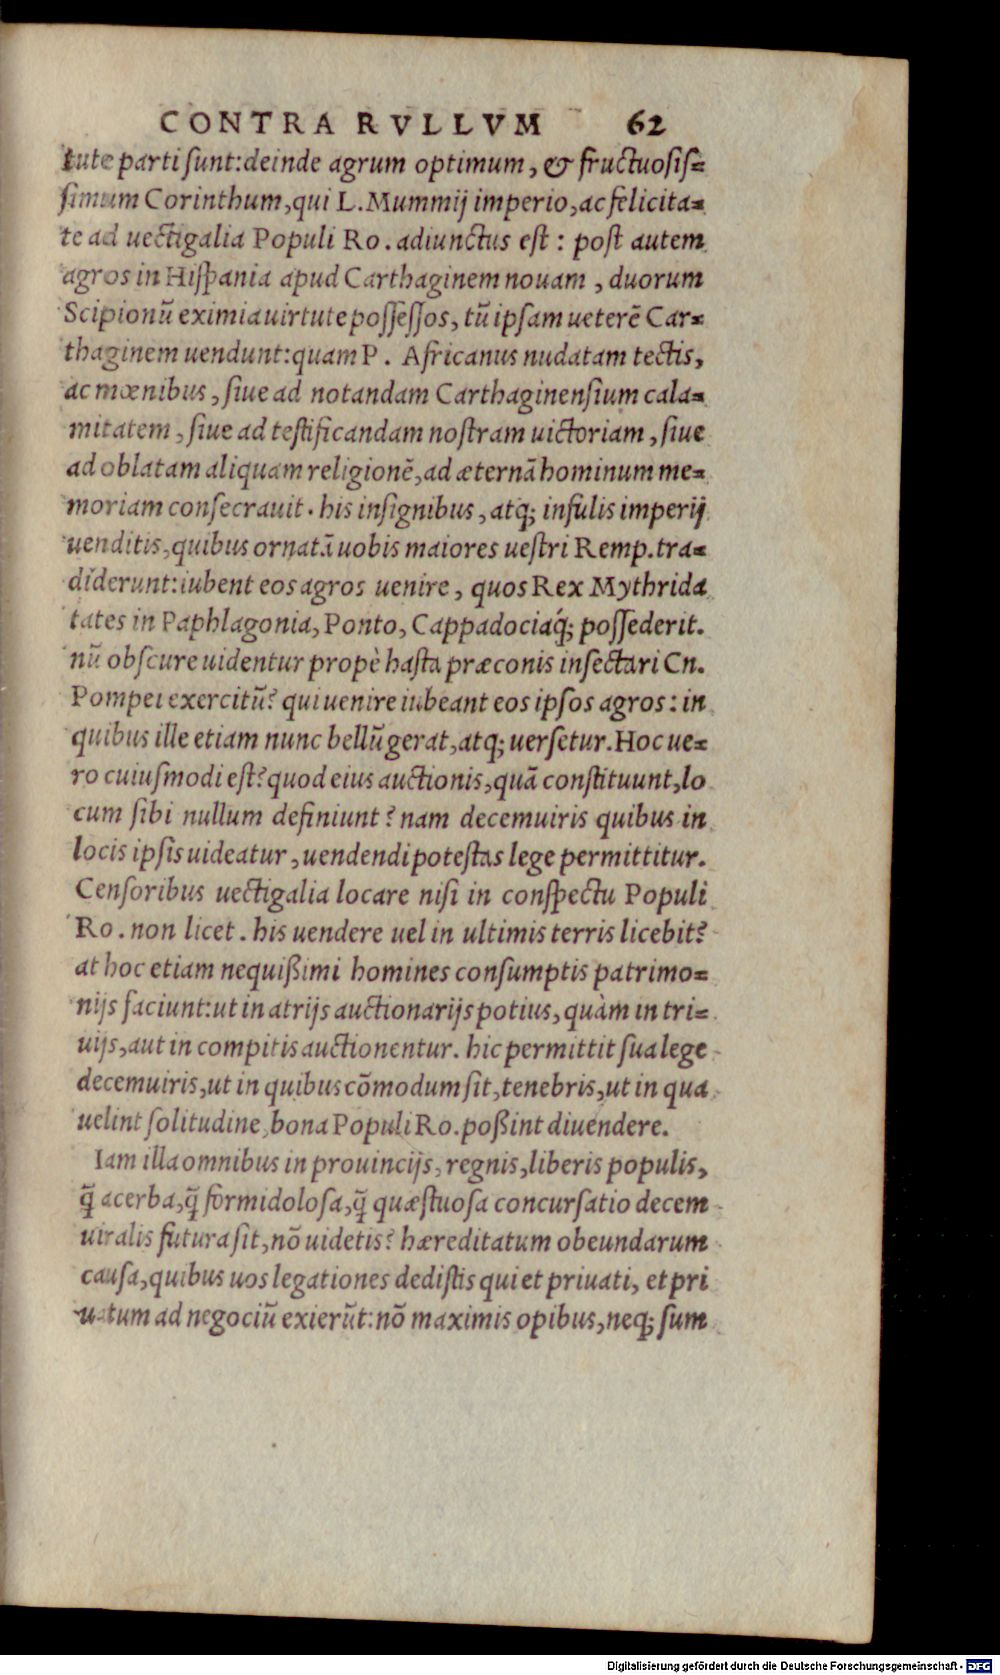 CONTRA RVLLVM 62
tute parti sunt: deinde agrum optimum, & fructuosis-
simum Corinthum, qui L. Mummij imperio, ac felicita-
te ad uectigalia Populi Ro. adiunctus est: post autem
agros in Hispania apud Carthaginem nouam, duorum
Scipionũ eximia uirtute possessos, tũ ipsam ueterẽ Car-
thaginem uendunt: quam P. Africanus nudatam tectis,
ac mœnibus, siue ad notandam Carthaginensium cala-
mitatem, siue ad testificandam nostram uictoriam, siue
ad oblatam aliquam religionẽ, ad æternã hominum me-
moriam consecrauit. his insignibus, atq; insulis imperij
uenditis, quibus ornatã uobis maiores uestri Remp. tra-
diderunt: iubent eos agros uenire, quos Rex Mythrida
tates in Paphlagonia, Ponto, Cappadociaq́; possederit.
nũ obscure uidentur propè hasta præconis insectari Cn.
Pompei exercitũ? qui uenire iubeant eos ipsos agros: in
quibus ille etiam nunc bellũ gerat, atq; uersetur. Hoc ue-
ro cuiusmodi est? quod eius auctionis, quã constituunt, lo
cum sibi nullum definiunt? nam decemuiris quibus in
locis ipsis uideatur, uendendi potestas lege permittitur.
Censoribus uectigalia locare nisi in conspectu Populi
Ro. non licet. his uendere uel in ultimis terris licebit?
at hoc etiam nequißimi homines consumptis patrimo-
nijs faciunt: ut in atrijs auctionarijs potius, quàm in tri-
uijs, aut in compitis auctionentur. hic permittit sua lege
decemuiris, ut in quibus cõmodum sit, tenebris, ut in qua
uelint solitudine, bona Populi Ro. poßint diuendere.
Iam illa omnibus in prouincijs, regnis, liberis populis,
q̃ acerba, q̃ formidolosa, q̃ quæstuosa concursatio decem
uiralis futura sit, nõ uidetis? hæreditatum obeundarum
causa, quibus uos legationes dedistis qui et priuati, et pri
uatum ad negociũ exierũt: nõ maximis opibus, neq; sum
Digitalisierung gefördert durch die Deutsche Forschungsgemeinschaft - DFG